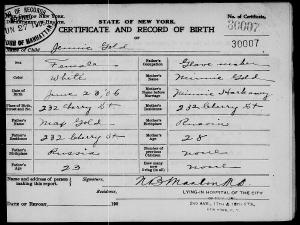 No. of Certificate,
30007
STATE OF NEW YORK.
CERTIFICATE AND RECORD OF BIRTH
OF
Name of Child Jennie Gold 30007
Sex Female
Color White
Date of Birth June 23, 06
Place of Birth 232 Cherry St
Father's Name Max Gold
Father's Residence 232 Cherry St
Father's Birthplace Russia
Father's Age 23
Father's Occupation
Mother's Name Minnie Gold
Mother's Name before Marriage Minnie
Mother's Residence 232 Cherry St
Mother's Birthplace Russia
Mother's Age 28
Number of previous Children none
How many now living (in all) none
Name and address of person making this report.
Signature,
Residence,
LYING-IN HOSPITAL OF THE CITY
DATE OF REPORT, 190
2ND AVE., 17TH & 18TH STS.